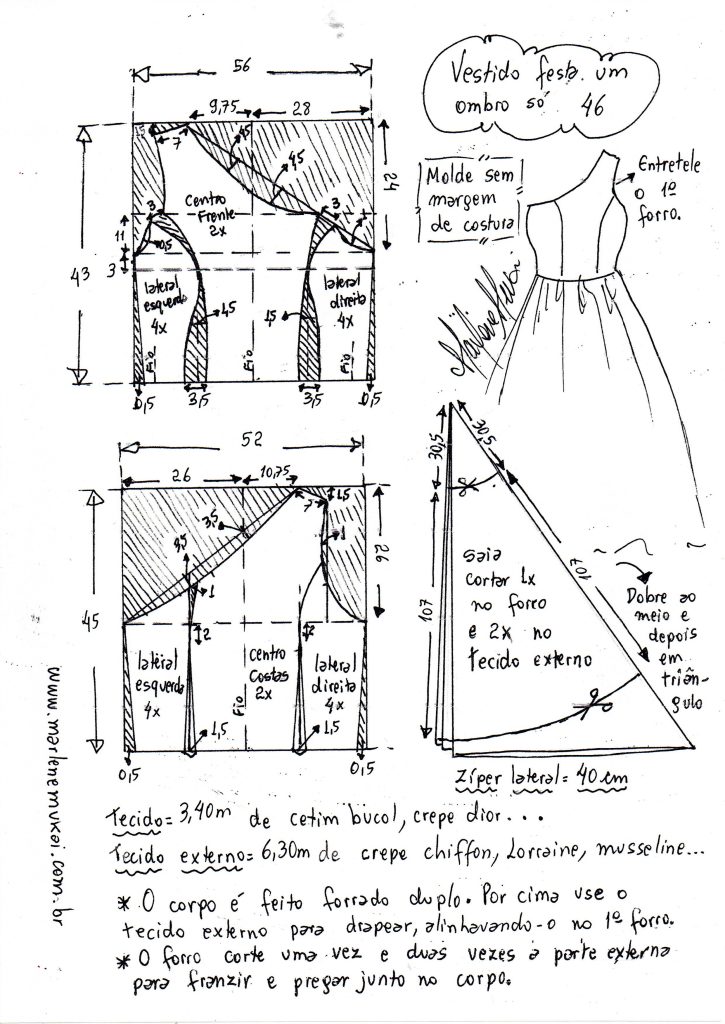 Vestido festa um
ombro só 46
56
9,75
28
Molde sem
margem
de costura
Entretele
o 1º
forro.
1,5
7
4,5
4,5
24
Centro
Frente
2x
3
3
1
11
0,5
43
3
lateral
esquerda
4x
lateral
direita
4x
1,5
1,5
Fio
Fio
Fio
0,5
3,5
3,5
0,5
52
26
10,75
30,5
30,5
3,5
7
1,5
1
26
1
45
2
2
lateral
esquerda
4x
Centro
Costas
2x
lateral
direita
4x
Fio
1,5
1,5
0,5
0,5
107
107
saia
cortar 1x
no forro
e 2x no
tecido externo
Dobre ao
meio e
depois
em
triân-
gulo
zíper lateral = 40 cm
www.marlenemukai.com.br
Tecido = 3,40m de cetim bucol, crepe dior...
Tecido externo = 6,30m de crepe chiffon, Lorraine, musseline...
* O corpo é feito forrado duplo. Por cima use o
tecido externo para drapear, alinhavando-o no 1º forro.
* O forro corte uma vez e duas vezes a parte externa
para franzir e pregar junto no corpo.